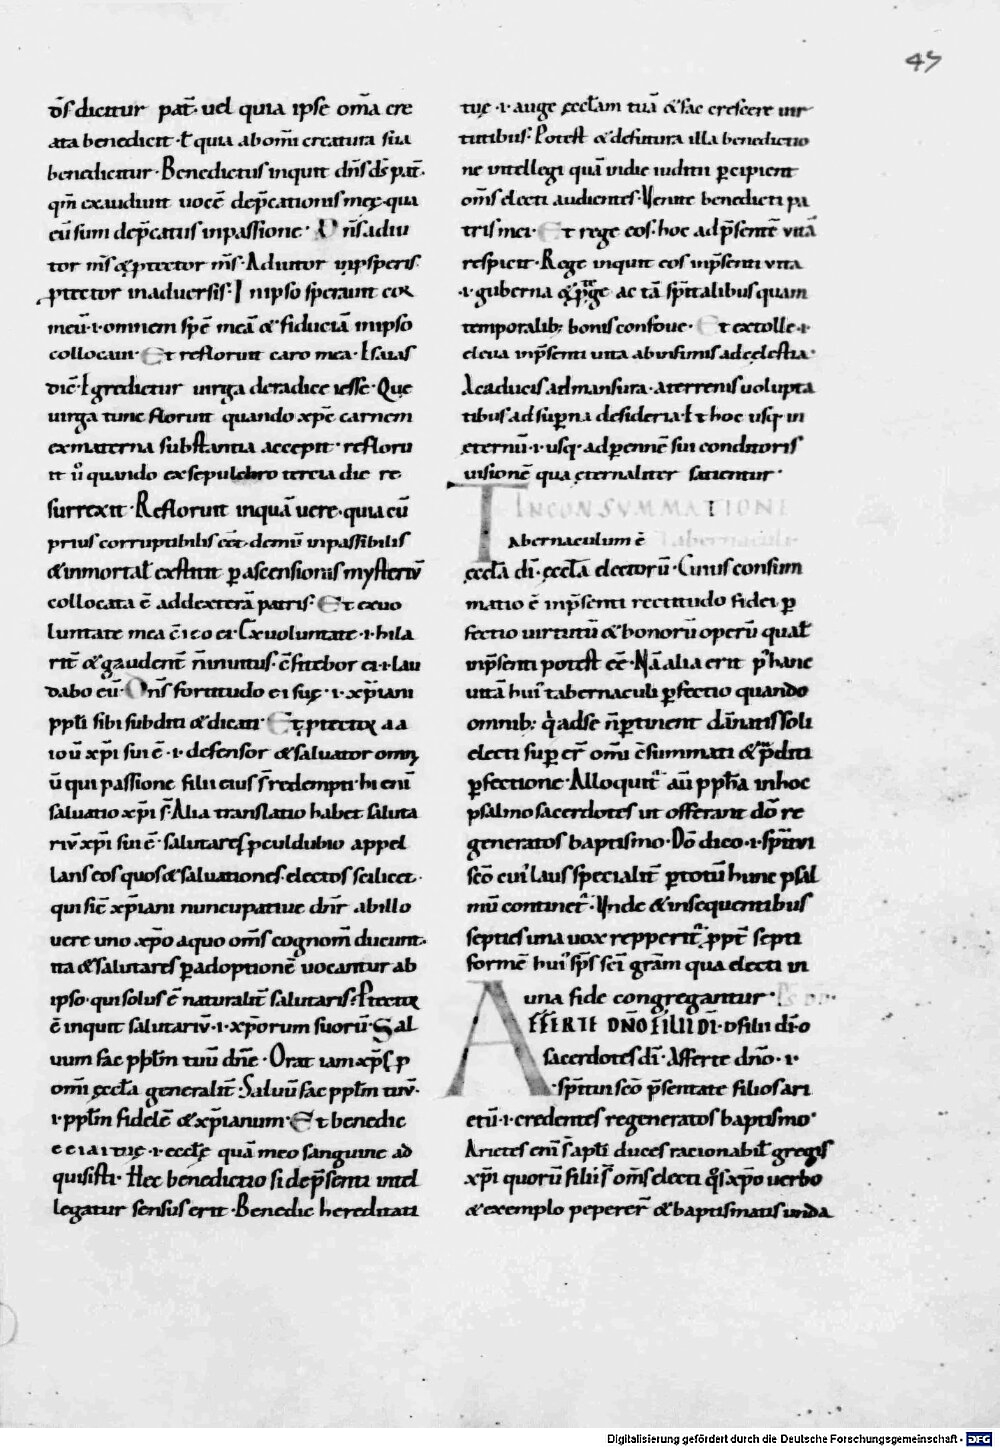 47
ds̄ dicitur pat̄. uel quia ipse om̄a cre
ata benedicit .ł quia ab om̄i creatura sua
benedicitur. Benedictus inquit dn̄s ds̄ pat̄.
qm̄ exaudiuit uocē dep̄cationis meę. qua
eū sum dep̄catus in passione. Dn̄s adiu
tor m̄s & ptector m̄s. Adiutor in psperis.
ptector in aduersis. In ipso sperauit cor
meū .i. omnem spē meā & fiduciā in ipso
collocaui. Et refloruit caro mea. Isaias
dic̄. Egredietur uirga de radice iesse. Quę
uirga tunc floruit quando xp̄c carnem
ex materna substantia accepit. refloru
it u° quando ex sepulchro tercia die re
surrexit. Refloruit inquā uere. quia cū
prius corruptibilis eēt. demū inpassibilis
& inmortał extitit p ascensionis mysteriū
collocata ē ad dexterā patris. Et ex uo
luntate mea c̄
Ex uoluntate .i. hila
rit̄ & gaudent̄ n̄ inuitus. c̄fitebor ei .i. lau
dabo eū. Dn̄s fortitudo
suę .i. xp̄iani
ppłi sibi subditi & dicati. Et ptector
xp̄i sui ē .i. defensor & saluator omīū
qui passione filii eius s̄ redempti. hi eni
saluatio xp̄i s̄. Alia translatio habet saluta
riū xp̄i sui ē. salutares pculdubio appel
lans eos quos & saluationes. electos scilicet.
qui sic̄ xp̄iani nuncupatiue dn̄r ab illo
uere uno xp̄o a quo om̄s cognom̄ ducunt.
ita & salutares p adoptionē uocantur ab
ipso. qui solus ē naturalit̄ salutaris. Ptector
ē inquit salutariū .i. xp̄orum suorū. Sal
uum fac ppłm tuū dn̄e. Orat iam xp̄s p
om̄i ęccła generalit̄. Saluū fac ppłm tuū.
.i. ppłm fidelē & xp̄ianum. Et benedic
.i. eccłę quā meo sanguine ad
quisisti. Hec benedictio si de p̄senti intel
legatur sensus erit. Benedic hereditati
tuę .i. auge ęccłam tuā & fac crescere uir
tutibus. Potest & de futura illa benedictio
ne intellegi quā in die iudicii pcipient
om̄s electi audientes. Venite benedicti pa
tris mei. Et rege eos. hoc ad p̄sentē uitā
respicit. Rege inquit eos in p̄senti uita
.i. guberna & p̄ge ac tā sp̄italibus quam
temporalib; bonis confoue. Et extolle .i.
eleua in p̄senti uita ab infimis ad cęlestia.
A caducis ad mansura. a terrenis uolupta
tibus ad supna desideria. Et hoc usq; in
ęternū .i. usq; ad pennē sui conditoris
uisionē qua ęternaliter satientur.
IN CONSVMMATIONE
Tabernaculum ē Tabernaculi
ęccła di. ęccła electorū. Cuius consum
matio ē in p̄senti rectitudo fidei p
fectio uirtutū & bonorū operū quał
in p̄senti potest eē. Nā alia erit p' hanc
uitā hui' tabernaculi pfectio quando
omnib; q̄ ad se n̄ ptinent dānatis soli
electi supēr om̄i c̄summati & p̄diti
pfectione. Alloquit' au pph̄a in hoc
psalmo sacerdotes ut offerant dō re
generatos baptismo. Dō dico .i. sp̄itui
scō cui' laus specialit̄ p totū hunc psal
mū continet'. Unde & in sequentibus
septies una uox repperit'. ppt̄ septi
formē hui' sps sci grām qua electi in
una fide congregantur. Ps DD.
AFFERTE DNO FILII DI. o filii di. o
sacerdotes di. Afferte dno .i.
sp̄itui scō p̄sentate filios ari
etū .i. credentes regeneratos baptismo.
Arietes eni s̄ apłi duces racionabił gregis
xp̄i quorū filii s̄ om̄s electi q̄s xp̄o uerbo
& exemplo peperer̄ & baptismatis unda
Digitalisierung gefördert durch die Deutsche Forschungsgemeinschaft - DFG